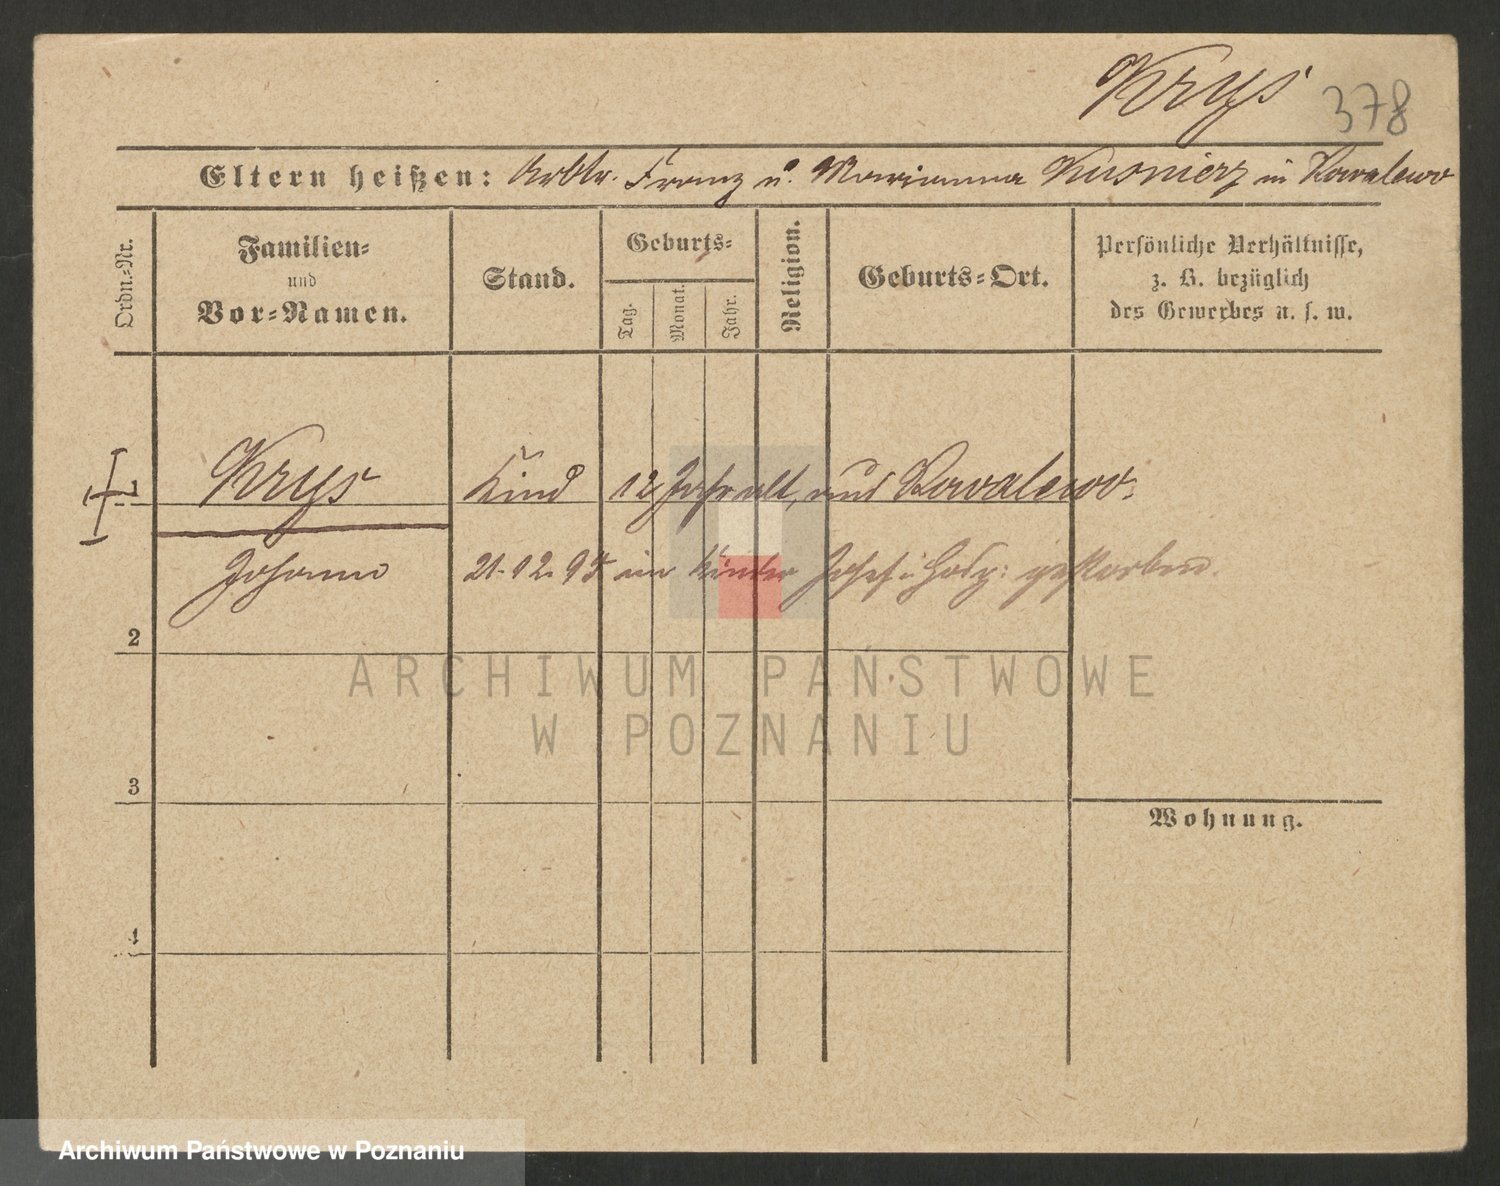 Krys
378
Eltern heißen: Arbtr. Franz u. Marianna Kusnierz in Kowalewo
Ordn.-Nr.
Familien-
und
Vor-Namen.
Stand.
Geburts-
Tag.
Monat.
Jahr.
Religion.
Geburts-Ort.
Persönliche Verhältnisse,
z. B. bezüglich
des Gewerbes u. s. w.
Krys Kind 12 Jahr alt, aus Kowalewo.
Johann 21.12.95 im Kinder Josef Hosp: gestorben.
2
3
Wohnung.
4
ARCHIWUM PAŃSTWOWE
W POZNANIU
Archiwum Państwowe w Poznaniu